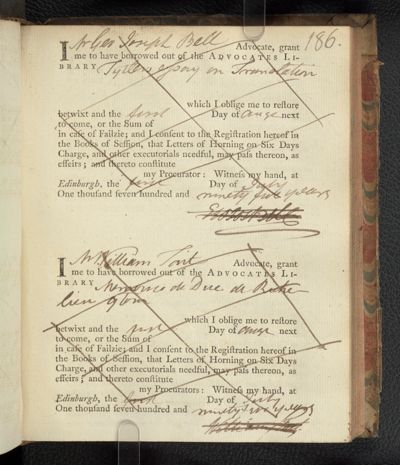 186.
I Mr Geo Joseph Bell Advocate, grant
me to have borrowed out of the ADVOCATES LI-
BRARY Tytlers Essay on Translation
which I oblige me to restore
betwixt and the first Day of Augt next
to come, or the Sum of
in case of Failzie; and I consent to the Registration hereof in
the Books of Session, that Letters of Horning on Six Days
Charge, and other executorials needful, may pass thereon, as
effeirs; and thereto constitute
my Procurators: Witness my hand, at
Edinburgh, the first Day of July
One thousand seven hundred and ninety five years
I Mr William Advocate, grant
me to have borrowed out of the ADVOCATES LI-
BRARY Memoires de Duc de Riche
lieu
which I oblige me to restore
betwixt and the first Day of Augt next
to come, or the Sum of
in case of Failzie; and I consent to the Registration hereof in
the Books of Session, that Letters of Horning on Six Days
Charge, and other executorials needful, may pass thereon, as
effeirs; and thereto constitute
my Procurators: Witness my hand, at
Edinburgh, the first Day of July
One thousand seven hundred and ninety five years